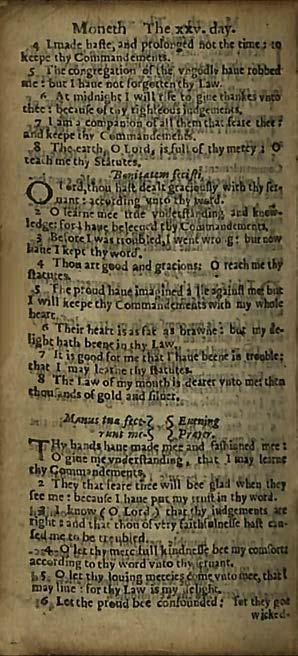 Moneth The xxv. day.
4 I made haste, and prolonged not the time: to
keepe thy Commandements.
5 The congregation of the vngodly haue robbed
me: but I haue not forgotten thy Law.
6 At midnight I will rise to giue thankes vnto
thee: because of thy righteous iudgements.
7 I am a companion of all them that feare thee:
and keepe thy Commandements.
8 The earth, O Lord, is full of thy mercy: O
teach me thy Statutes.
Bonitatem fecisti.
O Lord, thou hast dealt graciously with thy ser-
uant: according vnto thy word.
2 O learne mee true vnderstanding and know-
ledge: for I haue beleeued thy Commandements.
3 Before I was troubled, I went wrong: but now
haue I kept thy word.
4 Thou art good and gracious: O teach me thy
statutes.
5 The proud haue imagined a lie against me: but
I will keepe thy Commandements with my whole
heart.
6 Their heart is as fat as brawne: but my de-
light hath beene in thy Law.
7 It is good for me that I haue beene in trouble:
that I may learne thy statutes.
8 The Law of thy mouth is dearer vnto me: then
thousands of gold and siluer.
Manus tuæ fece- Euening
runt me. Prayer.
THy hands haue made mee and fashioned mee:
O giue me vnderstanding, that I may learne
thy Commandements.
2 They that feare thee will bee glad when they
see me: because I haue put my trust in thy word.
3 I know (O Lord) that thy iudgements are
right: and that thou of very faithfulnesse hast cau-
sed me to be troubled.
4 O let thy mercifull kindnesse bee my comfort:
according to thy word vnto thy seruant.
5 O let thy louing mercies come vnto mee, that I
may liue: for thy Law is my delight.
6 Let the proud bee confounded: for they goe
wicked-